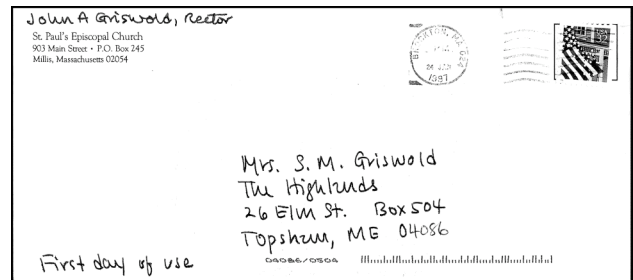 John A Griswold, Rector
St. Paul's Episcopal Church
903 Main Street • P.O. Box 245
Millis, Massachusetts 02054
BROCKTON, MA 024
24 JAN
1997
Mrs. S. M. Griswold
The Highlands
26 Elm St. Box 504
Topsham, ME 04086
04086/0504
First day of use